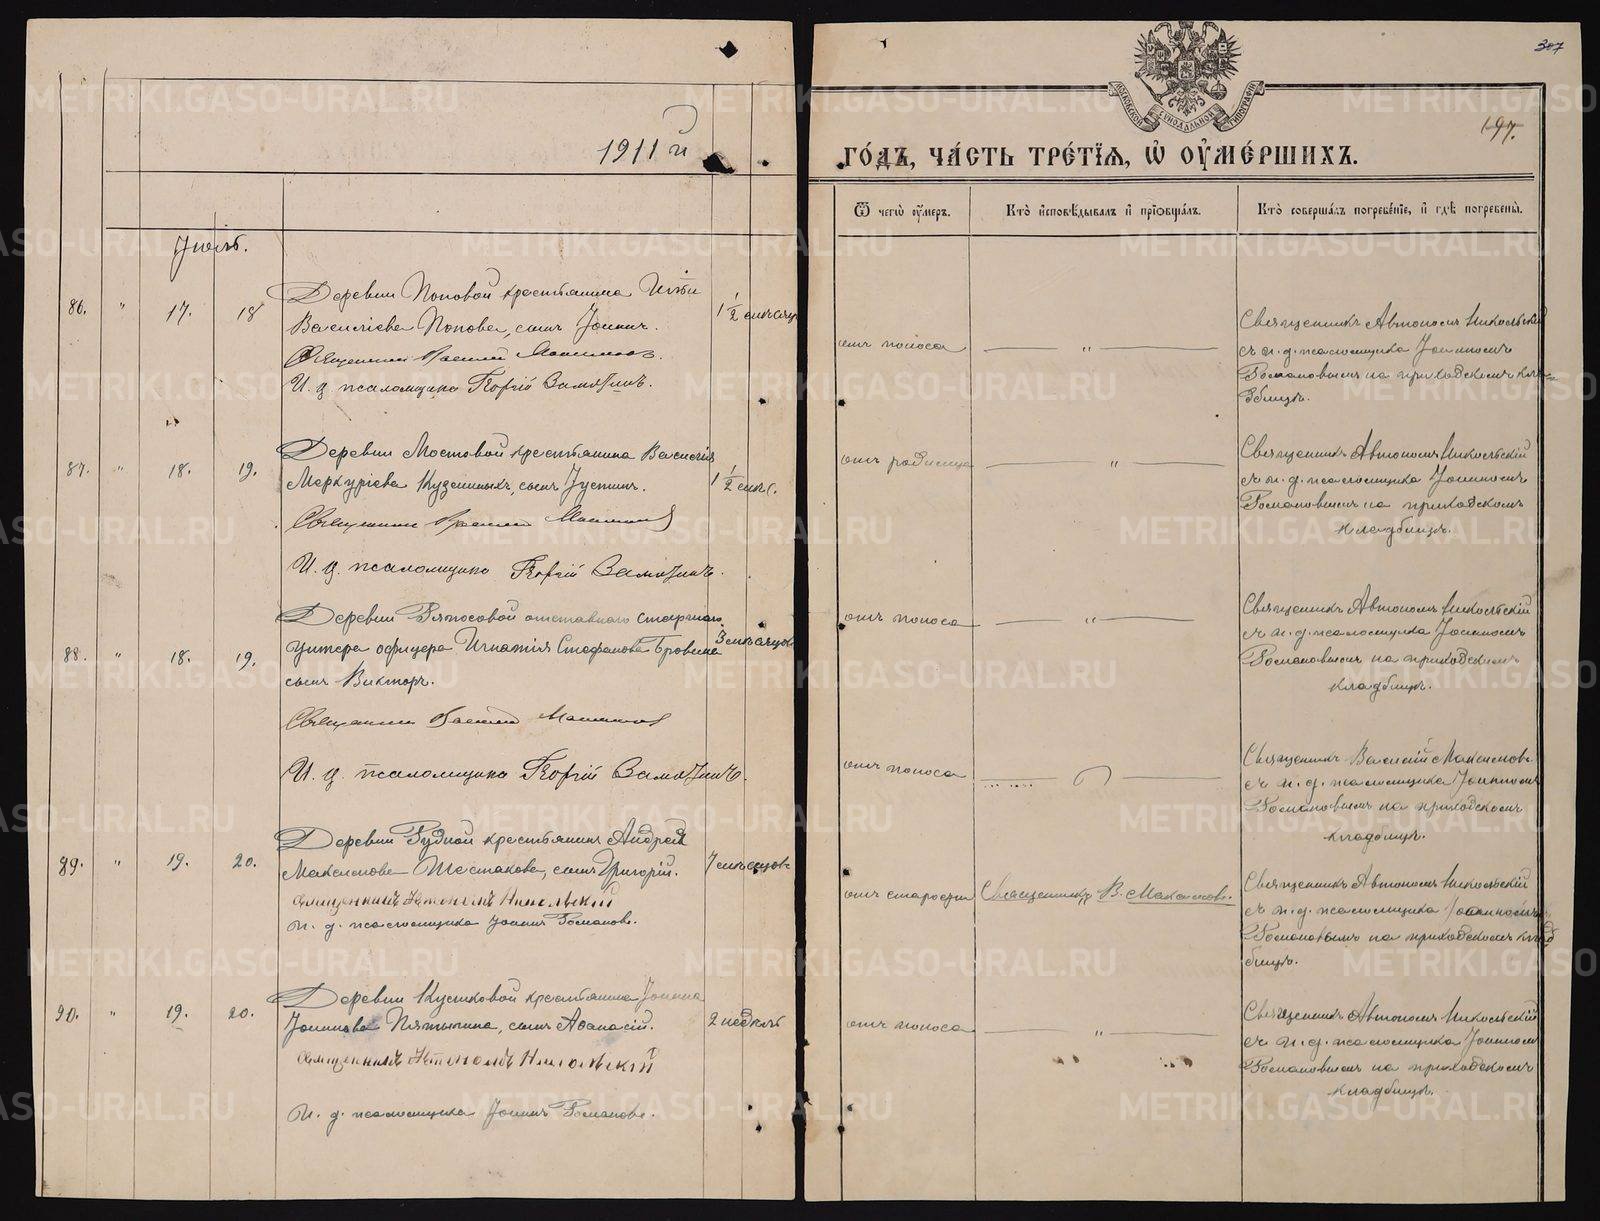 1911 й
307
197.
МОСКОВСКОЙ СѴНОДАЛЬНОЙ ТИПОГРАФІИ
ГО́ДЪ, ЧА́СТЬ ТРЕ́ТІѦ, Ѡ҆ ОУ҆МЕ́РШИХЪ.
Ѿ чегѡ̀ оу҆́меръ.
Кто̀ и҆сповѣ́дывалъ и҆ прїѡбща́лъ.
Кто̀ соверша́лъ погребе́нїе, и҆ гдѣ̀ погребены̀.
Іюль.
86. " 17. 18
Деревни Поповой крестьянина Ильи
Василіева Попова, сынъ Іоаннъ.
Священникъ Василій Максимовъ.
И. д. псаломщика Георгій Замятинъ.
1 1/2 мѣсяца
отъ поноса
"
Священникъ Автономъ Никольскій
съ и. д. псаломщика Іоанномъ
Романовымъ на приходскомъ клад-
бищѣ.
87. " 18. 19.
Деревни Мостовой крестьянина Василія
Меркуріева Куземиныхъ, сынъ Іустинъ.
Священникъ Василій Максимовъ
И. д. псаломщика Георгій Замятинъ.
1 1/2 мѣс.
отъ родимца
"
Священникъ Автономъ Никольскій
съ и. д. псаломщика Іоанномъ
Романовымъ на приходскомъ
кладбищѣ.
88. " 18. 19.
Деревни Ряпосовой отставного старшаго
унтеръ офицера Игнатія Стефанова Бровина
сынъ Викторъ.
Священникъ Василій Максимовъ
И. д. псаломщика Георгій Замятинъ.
3 мѣсяцов
отъ поноса
"
Священникъ Автономъ Никольскій
съ и. д. псаломщика Іоанномъ
Романовымъ на приходскомъ
кладбищѣ.
89. " 19. 20.
Деревни Рудной крестьянина Андрея
Максимова Шестакова, сынъ Григорій.
священникъ Автономъ Никольскій
и. д. псаломщика Іоаннъ Романовъ.
7 мѣсяцовъ
отъ поноса
Священникъ Василій Максимовъ
съ и. д. псаломщика Іоанномъ
Романовымъ на приходскомъ
кладбищѣ.
отъ старости
Священникъ В. Максимовъ.
Священникъ Автономъ Никольскій
съ и. д. псаломщика Іоанномъ
Романовымъ на приходскомъ клад
бищѣ.
90. " 19. 20.
Деревни Кушковой крестьянина Іоанна
Іоаннова Пятыгина, сынъ Аѳанасій.
священникъ Автономъ Никольскій
И. д. псаломщика Іоаннъ Романовъ.
2 недѣль
отъ поноса
"
Священникъ Автономъ Никольскій
съ и. д. псаломщика Іоанномъ
Романовымъ на приходскомъ
кладбищѣ.
METRIKI.GASO-URAL.RU